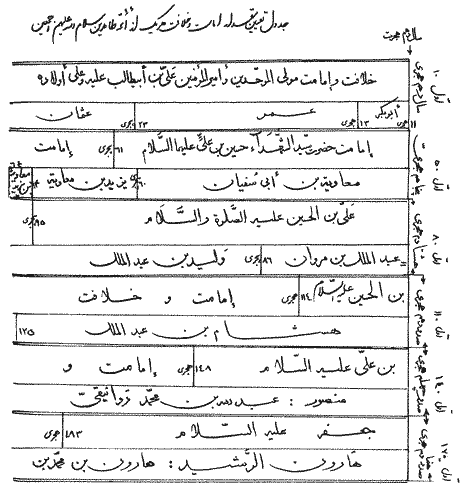 جدول تعیین امامت و خلافت هر یک از ائمّه طاهرین سلام الله علیهم اجمعین
سال دهم هجرت
خلافت و امامت مولی الموحدین امیر المؤمنین علیّ بن أبیطالب علیه و علی أولاده
أبوبکر ۱۳ هجری عمر ۲۳ هجری عثمان
إمامت حضرت سیّد الشّهداء حسین بن علیّ علیهما السَّلام ۶۱ هجری إمامت
معاویة بن أبی سُفیان ۶۰ هجری یزید بن معاویة ۶۴ معاویة بن یزید
علیّ بن الحسین علیه الصَّلوة والسَّلام ۹۵ هجری
عبد الملک بن مروان ۸۶ هجری ولید بن عبد الملک
بن الحسین علیه السلام ۱۱۴ هجری إمامت و خلافت
هشام بن عبد الملک ۱۲۵
بن علیّ علیه السَّلام ۱۴۸ هجری إمامت و
منصور : عبد الله بن محمّد دوانیقیّ
جعفر علیه السَّلام ۱۸۳ هجری
هارون الرَّشید : هارون بن محمّد بن